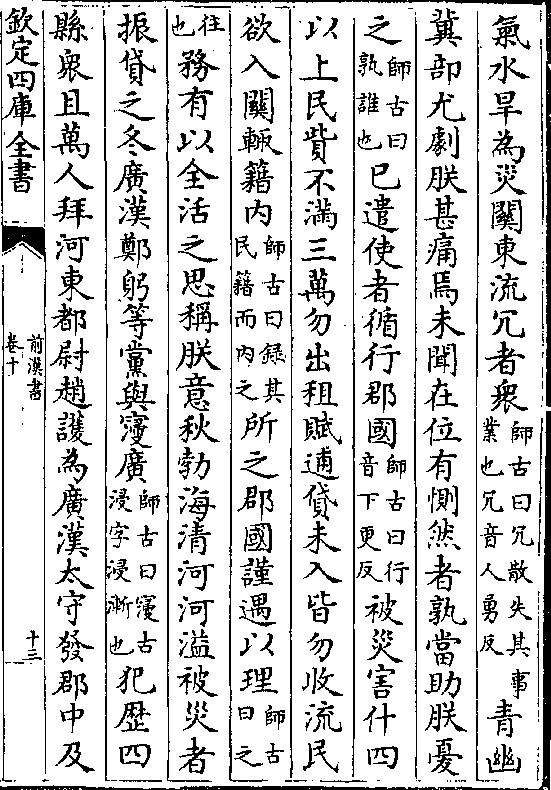 氣水旱為災關東流冗者衆師古曰冗散失其事業也冗音人勇反青幽
冀部尤劇朕甚痛焉未聞在位有惻然者孰當助朕憂
之師古曰孰誰也已遣使者循行郡國師古曰行音下更反被災害什四
以上民貲不滿三萬勿出租賦逋貸未入皆勿收流民
欲入關輒籍内師古曰録其民籍而内之所之郡國謹遇以理師古曰之
往也務有以全活之思稱朕意秋勃海清河河溢被災者
振貸之冬廣漢鄭躬等黨與寖廣師古曰寖古浸字浸漸也犯歴四
縣衆且萬人拜河東都尉趙護為廣漢太守發郡中及
欽定四庫全書
前漢書
卷十
十三